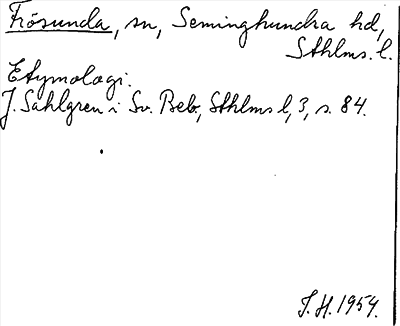 Frösunda, sn, Seminghundra hd,
Sthlms. l.
Etymologi.
J. Sahlgren i Sv. Beb., Sthlms l, 3, s. 84.
J. H. 1954.